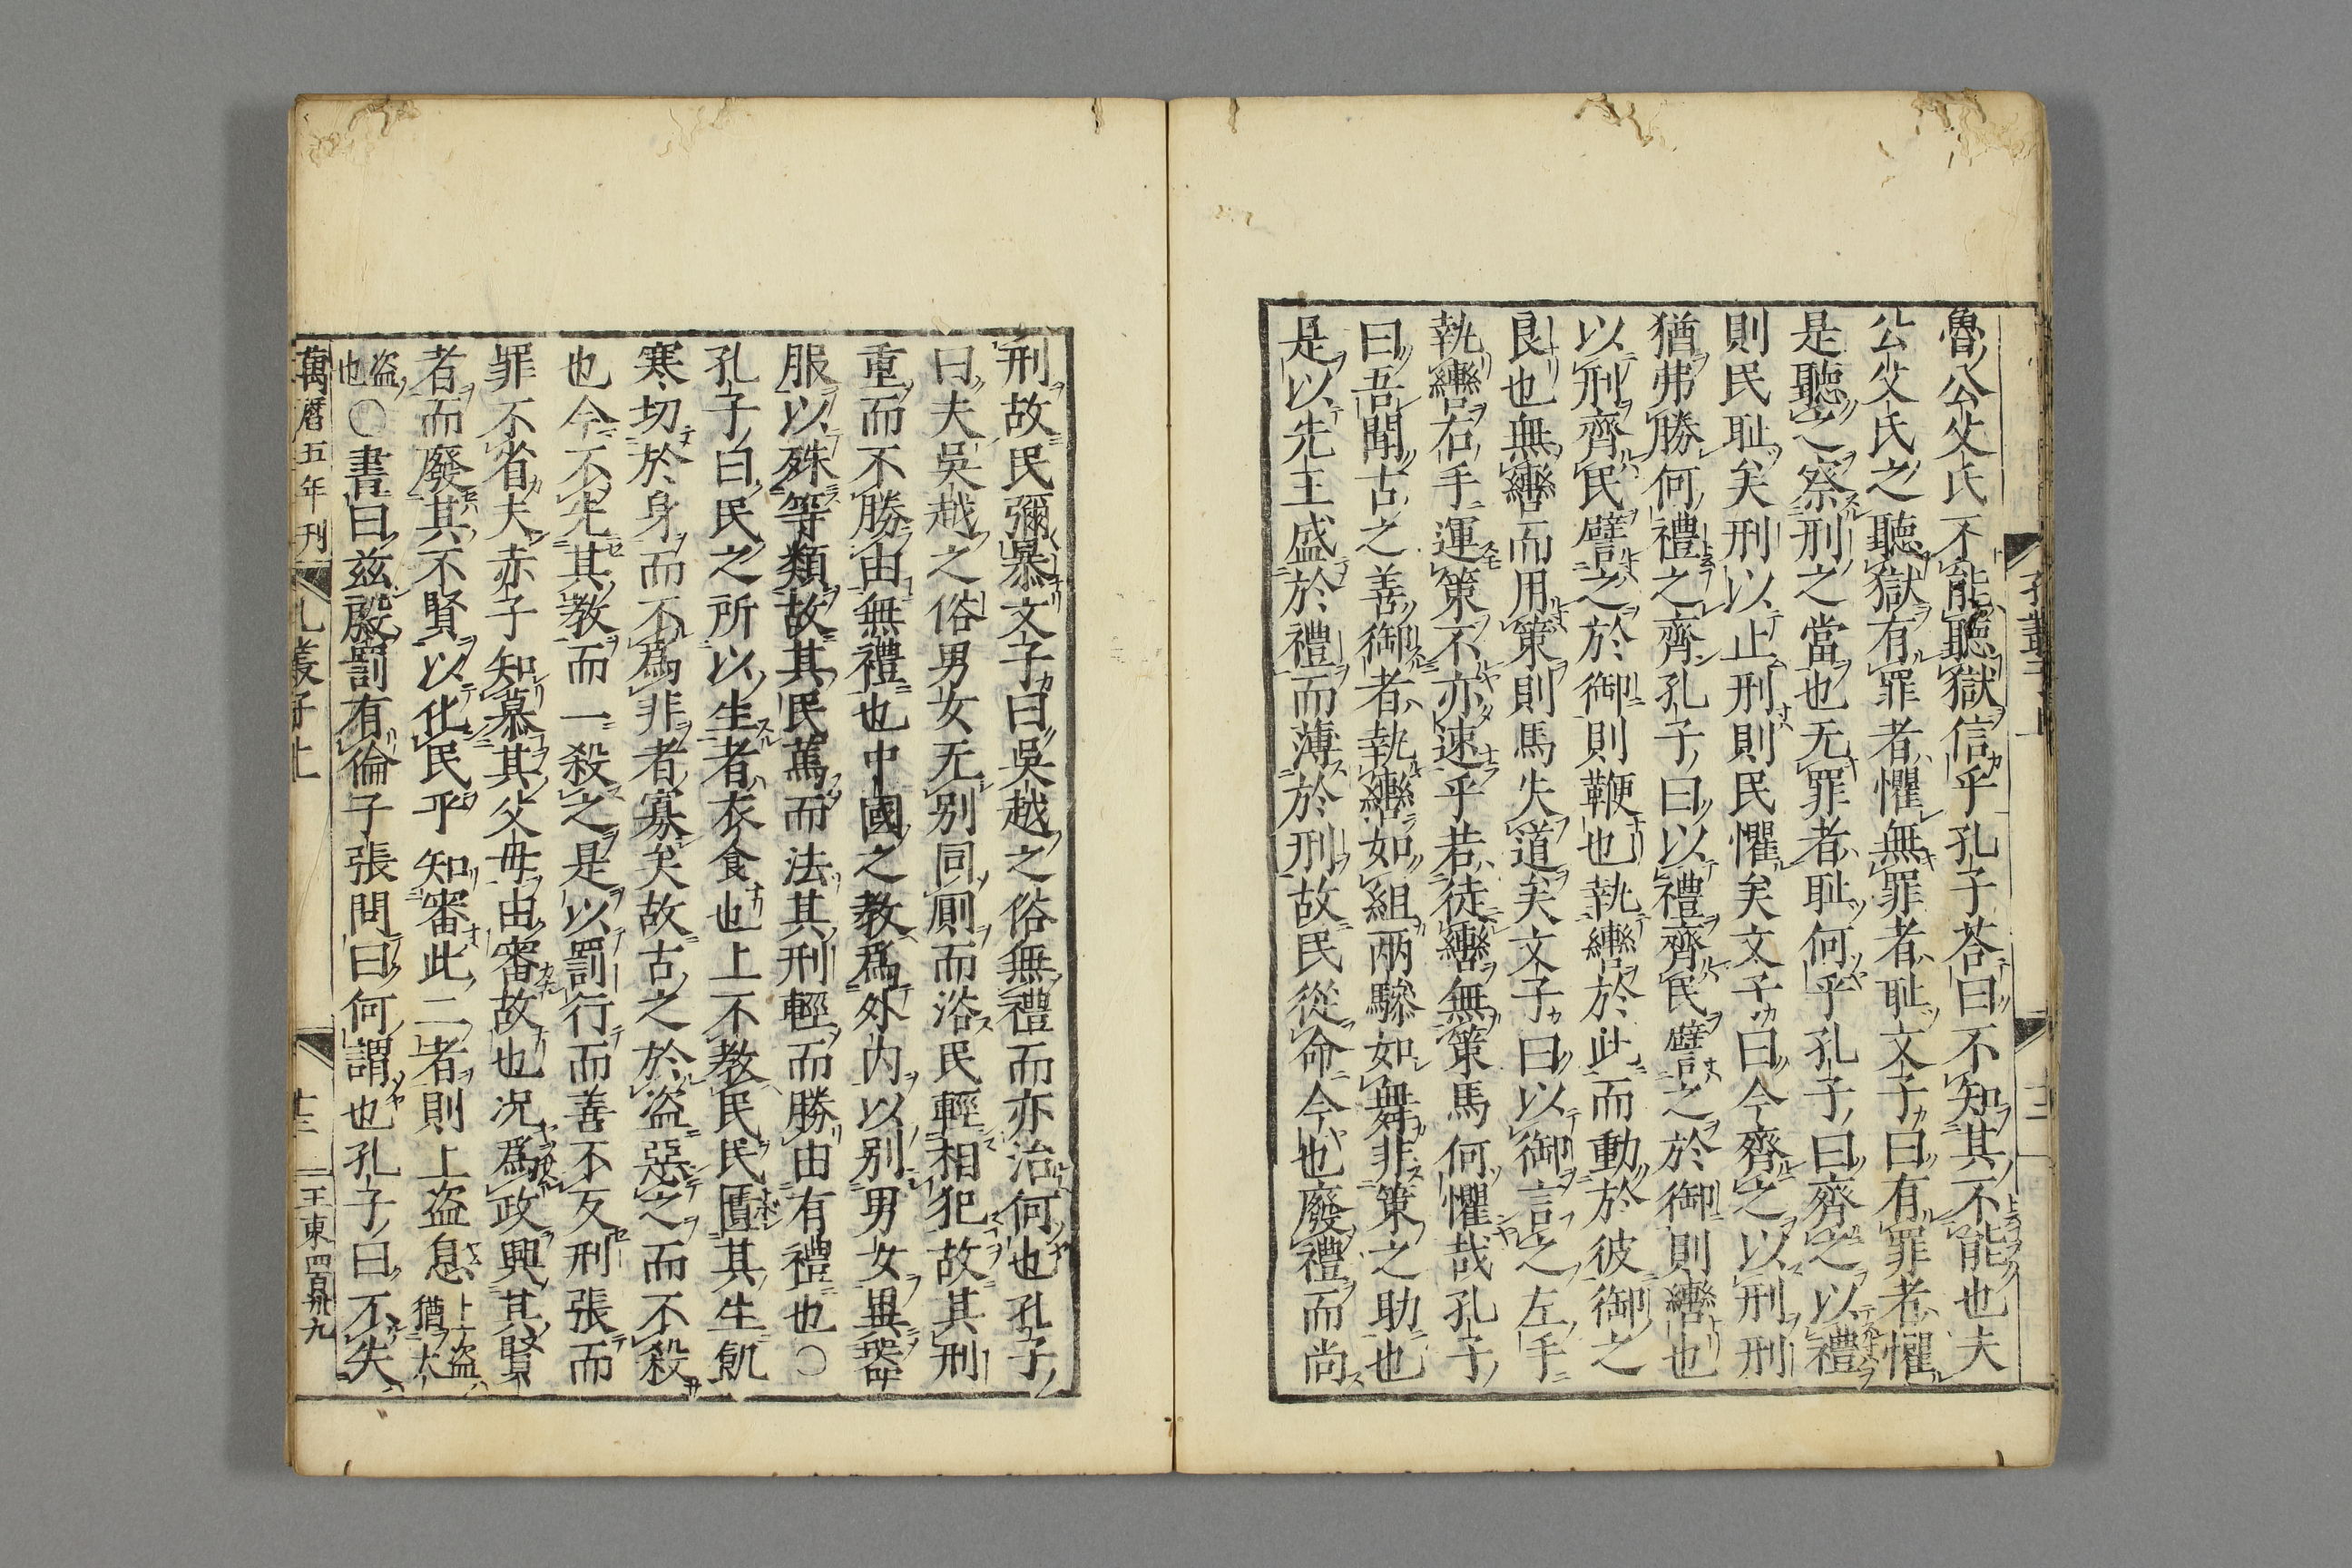 魯公父氏不能聽獄信乎孔子荅曰不知其不能也夫
公父氏之聽獄有罪者懼無罪者耻文子曰有罪者懼
是聽之察刑之當也无罪者耻何乎孔子曰齊之以禮
則民耻矣刑以止刑則民懼矣文子曰今齊之以刑刑
猶弗勝何禮之齊孔子曰以禮齊民譬之於御則轡也
以刑齊民譬之於御則鞭也執轡於此而動於彼御之
良也無轡而用策則馬失道矣文子曰以御言之左手
執轡右手運策不亦速乎若徒轡無策馬何懼哉孔子
曰吾聞古之善御者執轡如組兩驂如舞非策之助也
是以先王盛於禮而薄於刑故民從命今也廢禮而尚
刑故民彌暴文子曰吳越之俗無禮而亦治何也孔子
曰夫吳越之俗男女无别同厠而浴民輕相犯故其刑
重而不勝由無禮也中國之教爲外内以别男女異器
服以殊等類故其民篤而法其刑輕而勝由有禮也○
孔子曰民之所以生者衣食也上不教民民匱其生飢
寒切於身而不爲非者寡矣故古之於盗惡之而不殺
也今不先其教而一殺之是以罰行而善不反刑張而
罪不省夫赤子知慕其父母由審故也况爲政興其賢
者而廢其不賢以化民乎知審此二者則上盗息 上盗猶大
盗也○書曰兹殷罰有倫子張問曰何謂也孔子曰不失
萬曆五年刊 孔叢子上 十三 王東 四百卅九